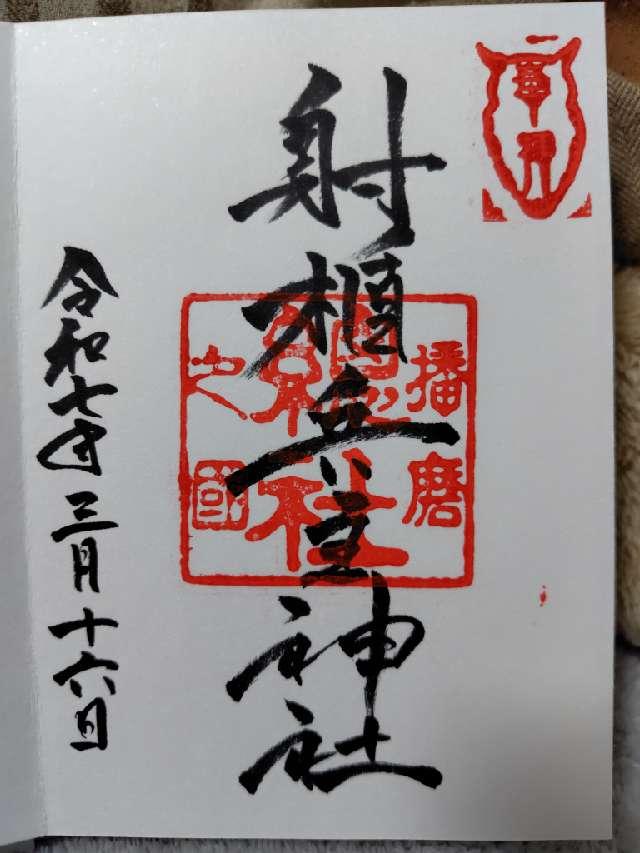 射楯兵主神社
播磨
總社
之國
令和七年三月十六日